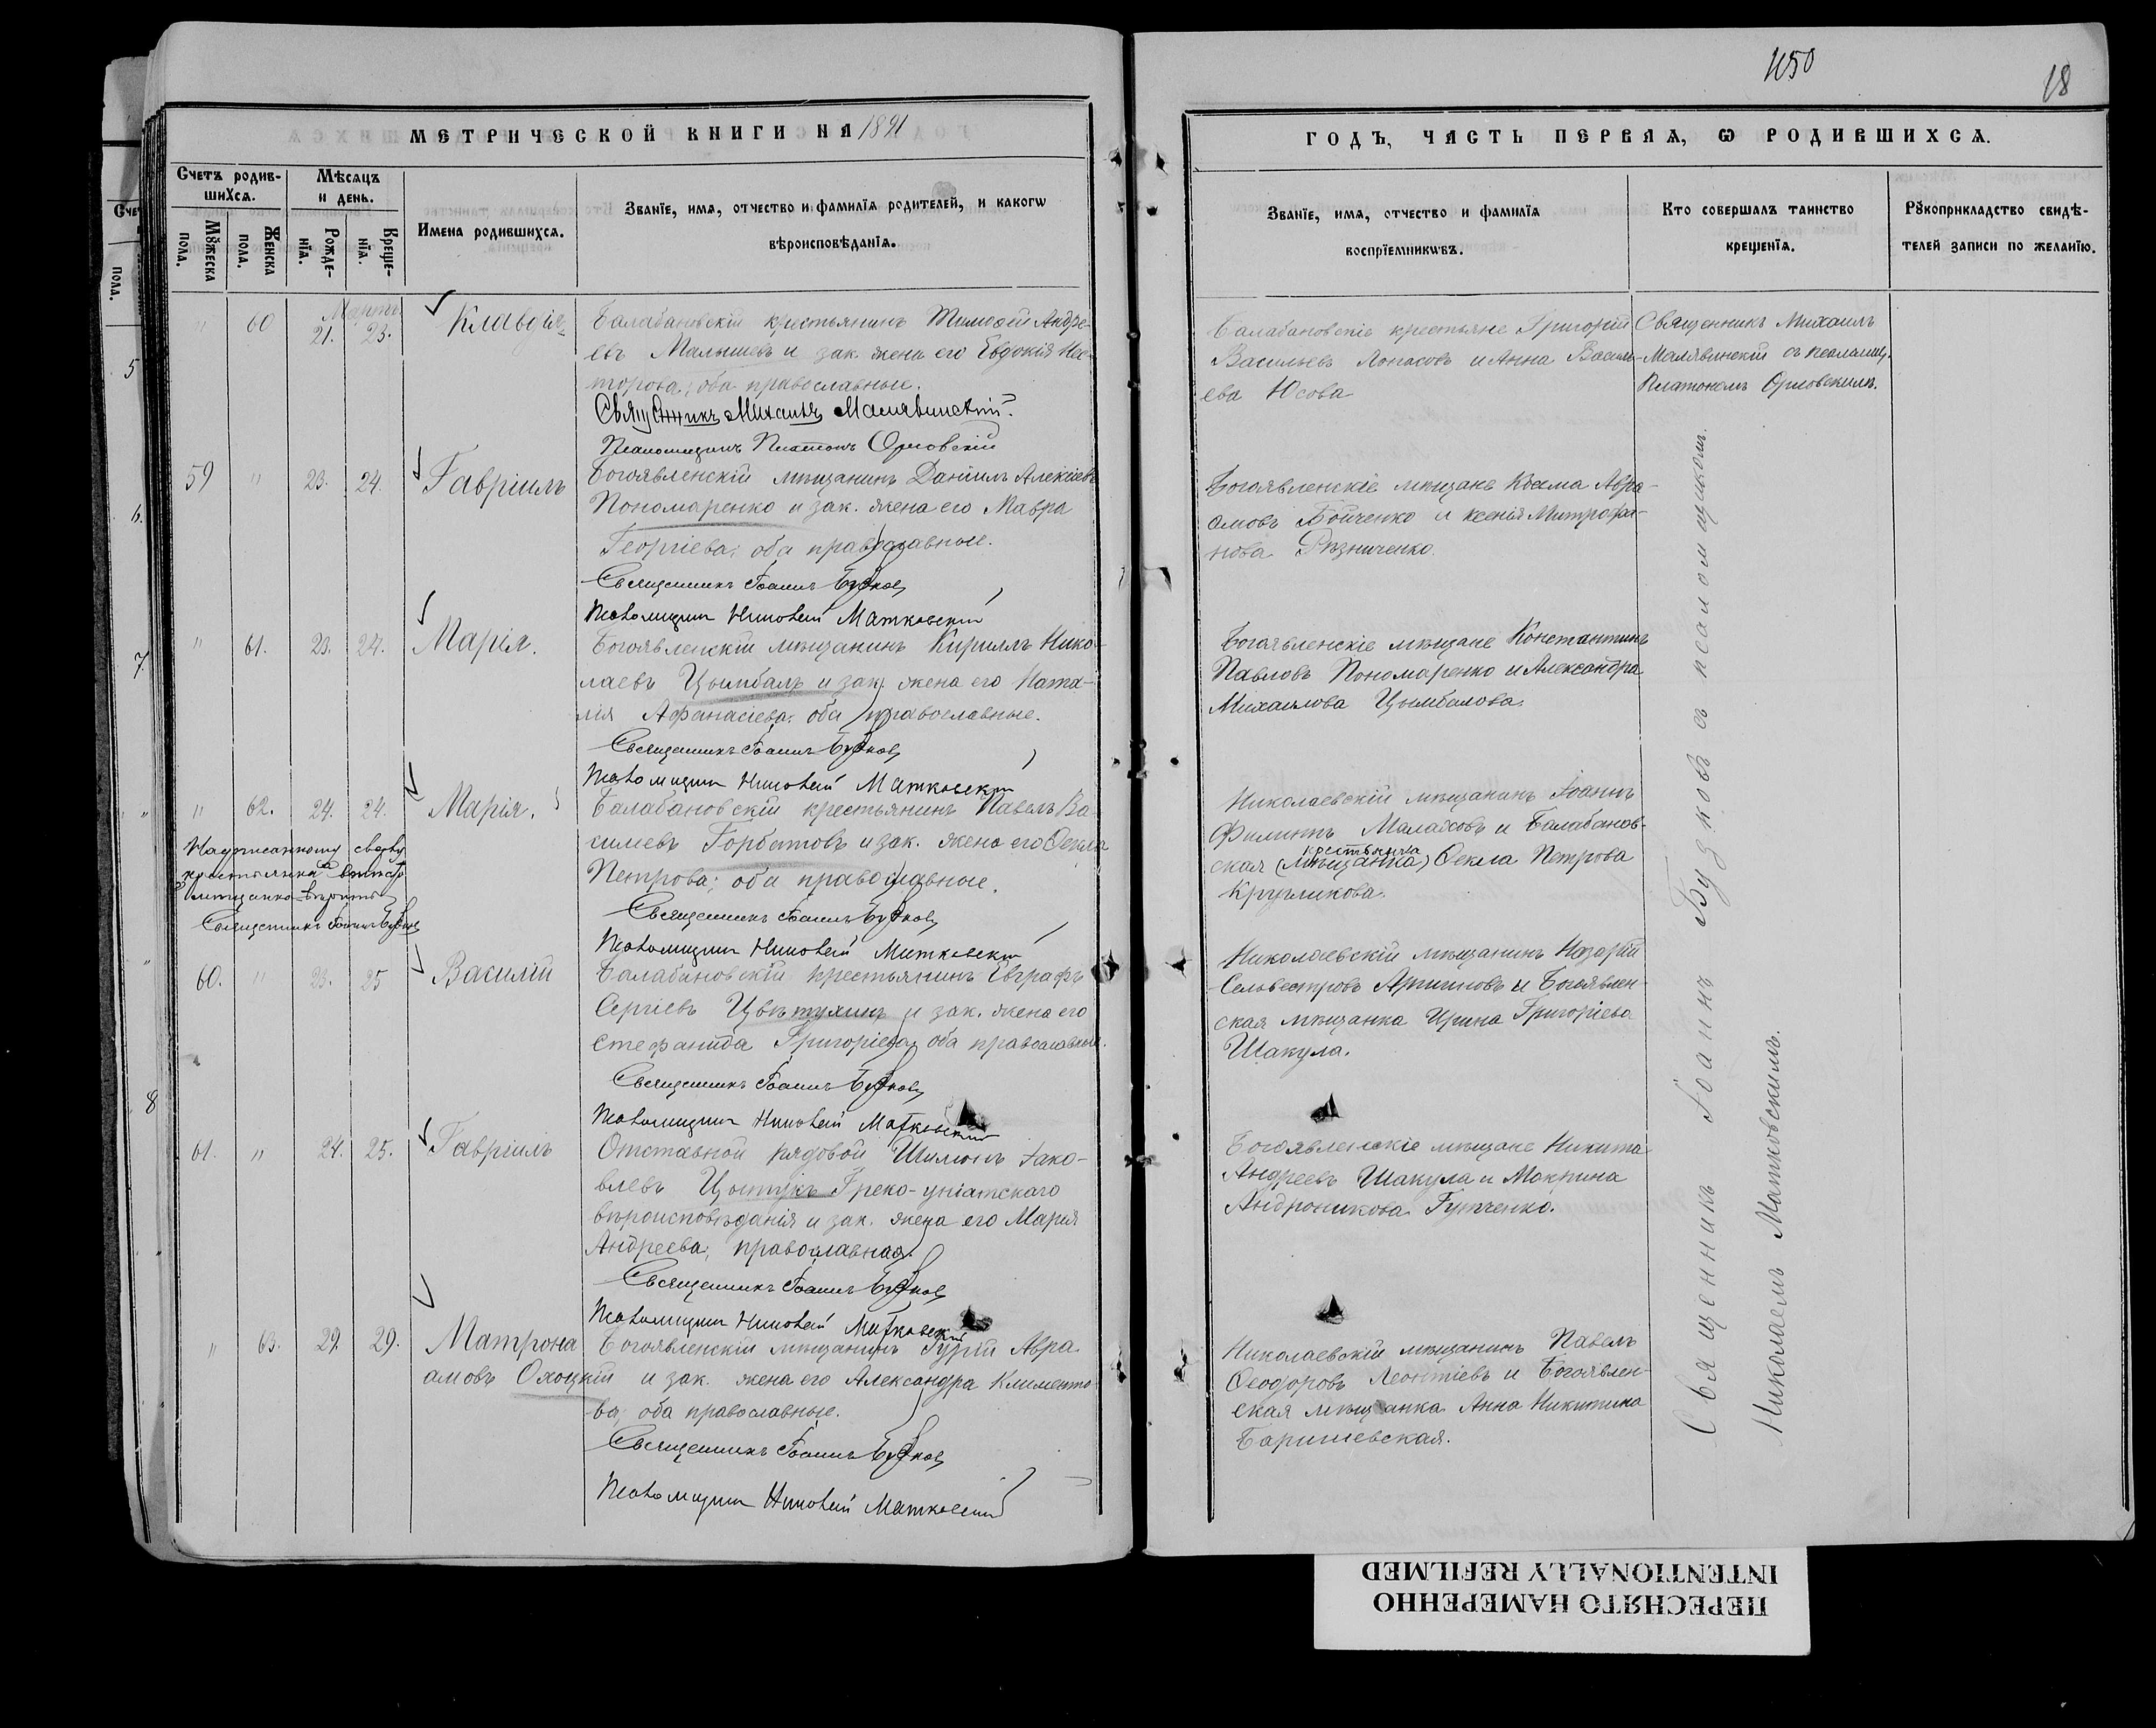 450
18
МЕТРИЧЕСКОЙ КНИГИ НА 1891
ГОДЪ, ЧАСТЬ ПЕРВАЯ, Ѡ РОДИВШИХСѦ.
Счетъ родив-
шихсѧ.
Мѣсѧцъ
и день.
Имена родившихсѧ.
Званїе, имѧ, отчество и фамилїѧ родителей, и какогѡ
вѣроисповѣданїѧ.
Мꙋжеска
пола.
Женска
пола.
Рожде-
нїѧ.
Креще-
нїѧ.
Званїе, имѧ, отчество и фамилїѧ
воспрїемникѡвъ.
Кто совершалъ таинство
крещенїѧ.
Рꙋкоприкладство свидѣ-
телей записи по желанїю.
Мартъ
" 60 21. 23. Клавдія
Балабановскій крестьянинъ Тимоѳей Андре-
евъ Малышевъ и зак. жена его Евдокія Нес-
торова; оба православные.
Священникъ Михаилъ Малявинскій.
Псаломщикъ Платонъ Орловскій
Балабановскіе крестьяне Григорій
Васильевъ и Анна Василь-
ева Юсова
Священникъ Михаилъ
Малявинскій съ псаломщ.
Платономъ Орловскимъ.
59 " 23. 24. Гавріилъ
Богоявленскій мѣщанинъ Даніилъ Алексіевъ
Пономаренко и зак. жена его Мавра
Георгіева; оба православные.
Священникъ Іоаннъ Будковъ
Псаломщикъ Николай Матковскій
Богоявленскіе мѣщане Косма Авра-
амовъ Бойченко и Ксенія Митрофа-
нова Рѣзниченко.
" 61. 23. 24. Марія.
Богоявленскій мѣщанинъ Кириллъ Нико-
лаевъ Цымбалъ и зак. жена его Ната-
лія Афанасіева; оба православные.
Священникъ Іоаннъ Будковъ
Псаломщикъ Николай Матковскій
Богоявленскіе мѣщане Константинъ
Павловъ Пономаренко и Александра
Михаилова Цымбалова.
" 62. 24. 24. Марія.
Балабановскій крестьянинъ Павелъ Ва-
сильевъ Горбатовъ и зак. жена его Ѳекла
Петрова; оба православные.
Священникъ Іоаннъ Будковъ
Псаломщикъ Николай Матковскій
Надписанному сверху
крестьянка вмѣсто
мѣщанка вѣрить
Священникъ Іоаннъ Будковъ
Николаевскій мѣщанинъ Іоаннъ
Филиппъ и Балабанов-
крестьянка
ская (мѣщанка) Ѳекла Петрова
Кругликова.
60. " 23. 25 Василій
Балабановскій крестьянинъ Евграфъ
Сергіевъ Цвѣтухинъ и зак. жена его
Стефанида Григоріева; оба православные.
Священникъ Іоаннъ Будковъ
Псаломщикъ Николай Матковскій
Николаевскій мѣщанинъ Назарій
Сельвестровъ и Богоявлен-
ская мѣщанка Ирина Григоріева
Шакула.
61. " 24. 25. Гавріилъ
Отставной рядовой Шимонъ Іако-
влевъ Цыпукъ Греко-уніатскаго
вѣроисповѣданія и зак. жена его Марія
Андреева; православная.
Священникъ Іоаннъ Будковъ
Псаломщикъ Николай Матковскій
Богоявленскіе мѣщане Никита
Андреевъ Шакула и Макрина
Андроникова
" 63. 29. 29. Матрона
Богоявленскій мѣщанинъ Гурій Авра-
амовъ Охоцкій и зак. жена его Александра Клименто-
ва; оба православные.
Священникъ Іоаннъ Будковъ
Псаломщикъ Николай Матковскій
Николаевскій мѣщанинъ Павелъ
Ѳеодоровъ Леонтіевъ и Богоявлен-
ская мѣщанка Анна Никитина
Баришевская.
Священникъ Іоаннъ Будковъ съ псаломщикомъ
Николаемъ Матковскимъ.
ПЕРЕСНЯТО НАМЕРЕННО
INTENTIONALLY REFILMED